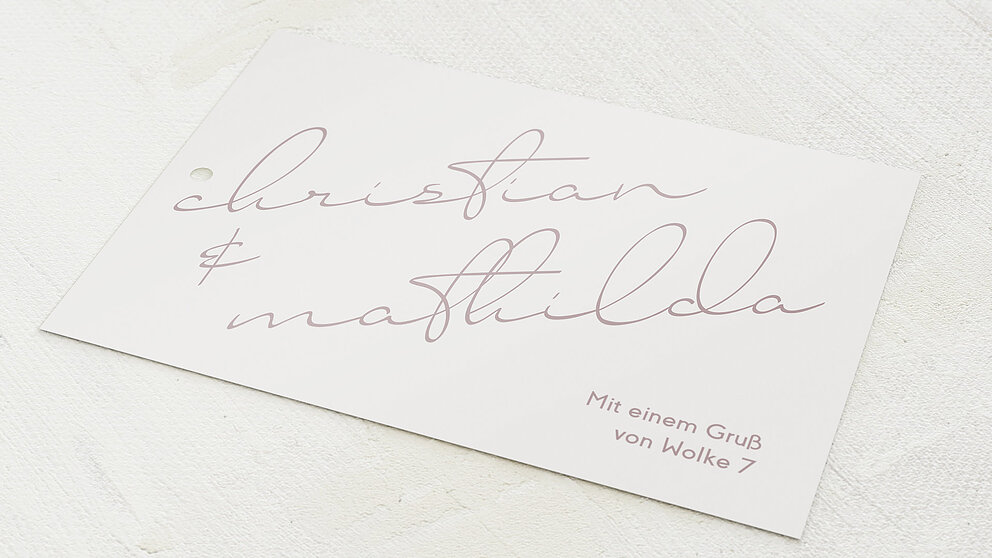 christian
&
mathilda
Mit einem Gruß
von Wolke 7